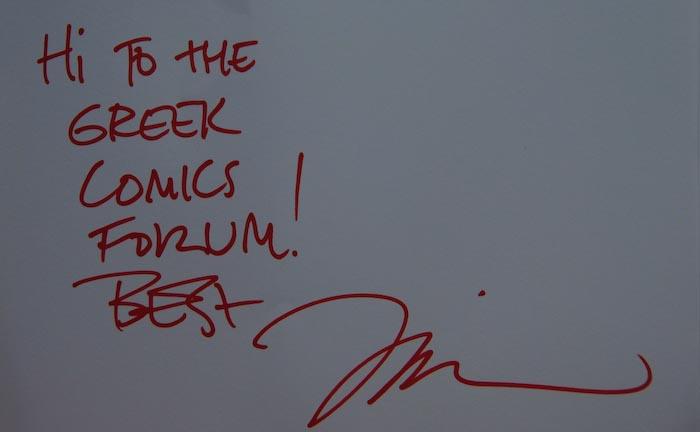 Hi TO THE
GREEK
COMICS
FORUM!
BEST